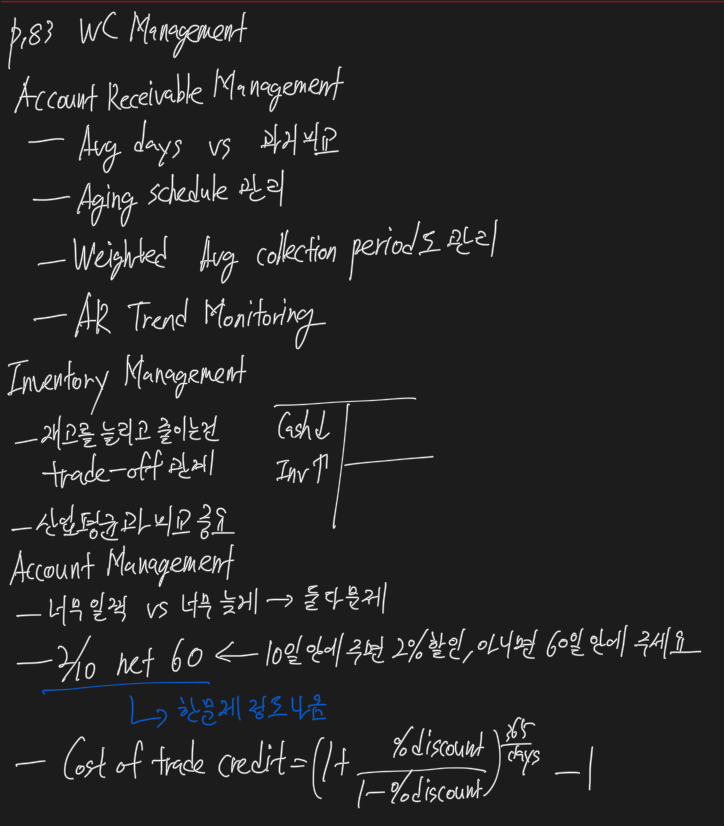 p.83 WC Management
Account Receivable Management
— Avg days vs 과거비교
— Aging schedule 관리
— Weighted Avg collection period도 관리
— AR Trend Monitoring
Inventory Management
— 재고를 늘리고 줄이는건
trade-off 관계
Cash↓
Inv↑
— 산업평균과 비교 중요
Account Management
— 너무 일찍 vs 너무 늦게 → 둘다 문제
— 2/10 net 60 ← 10일 안에 주면 2% 할인, 아니면 60일 안에 주세요
↳ 한문제 정도 나옴
— Cost of trade credit = (1 + %discount / 1 - %discount)^(365/days) - 1